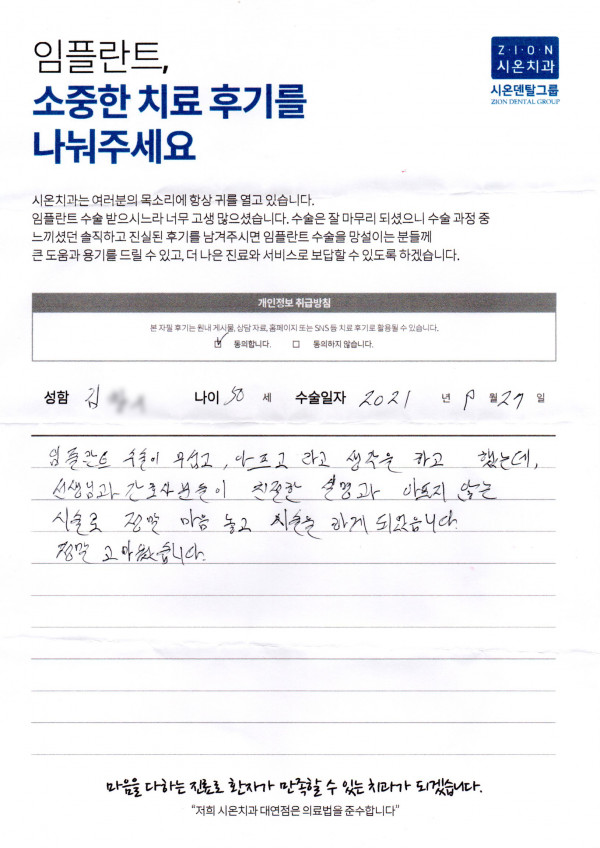 임플란트,
소중한 치료 후기를
나눠주세요
Z·I·O·N
시온치과
시온덴탈그룹
ZION DENTAL GROUP
시온치과는 여러분의 목소리에 항상 귀를 열고 있습니다.
임플란트 수술 받으시느라 너무 고생 많으셨습니다. 수술은 잘 마무리 되셨으니 수술 과정 중
느끼셨던 솔직하고 진실된 후기를 남겨주시면 임플란트 수술을 망설이는 분들께
큰 도움과 용기를 드릴 수 있고, 더 나은 진료와 서비스로 보답할 수 있도록 하겠습니다.
개인정보 취급방침
본 자필 후기는 원내 게시물, 상담 자료, 홈페이지 또는 SNS 등 치료 후기로 활용될 수 있습니다.
동의합니다. 동의하지 않습니다.
성함 김 나이 50 세 수술일자 2021 년 월 27 일
임플란트 수술이 무섭고, 아프고 라고 생각을 하고 했는데,
선생님과 간호사분들이 친절한 설명과 아프지 않는
시술로 정말 마음 놓고 시술을 하게 되었습니다.
정말 고마웠습니다.
마음을 다하는 진료로 환자가 만족할 수 있는 치과가 되겠습니다.
“저희 시온치과 대연점은 의료법을 준수합니다”